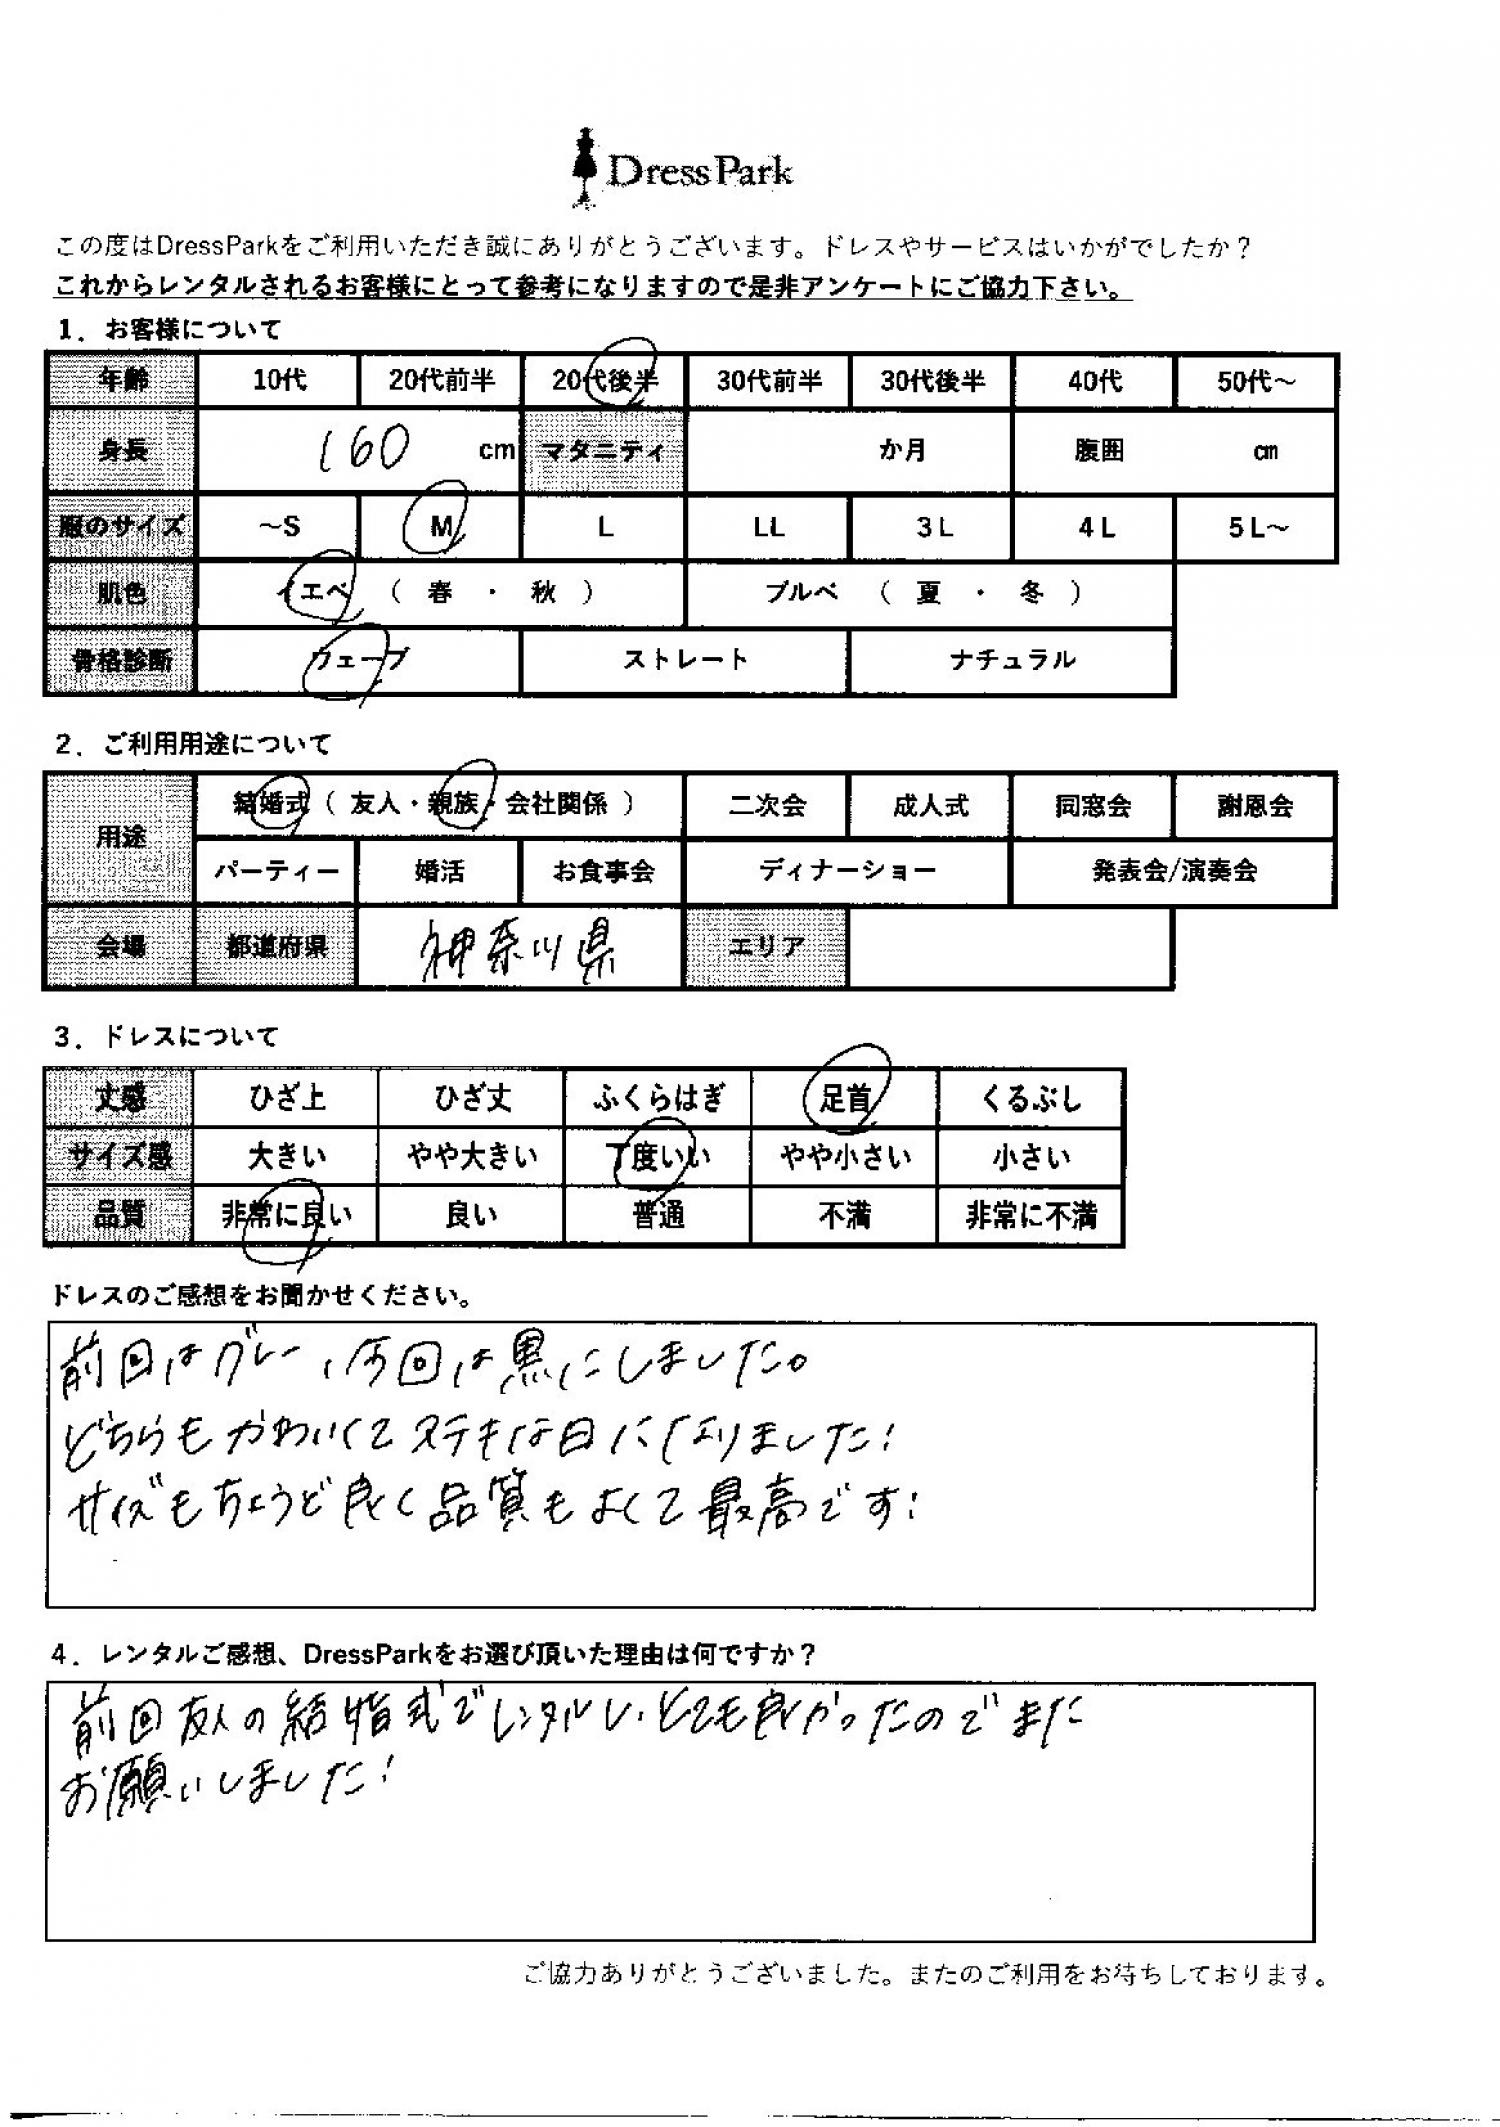 DressPark
この度はDressParkをご利用いただき誠にありがとうございます。ドレスやサービスはいかがでしたか？
これからレンタルされるお客様にとって参考になりますので是非アンケートにご協力下さい。
1．お客様について
年齢 10代 20代前半 20代後半 30代前半 30代後半 40代 50代～
身長 160 cm マタニティ か月 腹囲 cm
服のサイズ ～S M L LL 3L 4L 5L～
肌色 イエベ （ 春 ・ 秋 ） ブルベ （ 夏 ・ 冬 ）
骨格診断 ウェーブ ストレート ナチュラル
2．ご利用用途について
用途 結婚式（ 友人・親族・会社関係 ） 二次会 成人式 同窓会 謝恩会
パーティー 婚活 お食事会 ディナーショー 発表会/演奏会
会場 都道府県 神奈川県 エリア
3．ドレスについて
丈感 ひざ上 ひざ丈 ふくらはぎ 足首 くるぶし
サイズ感 大きい やや大きい 丁度いい やや小さい 小さい
品質 非常に良い 良い 普通 不満 非常に不満
ドレスのご感想をお聞かせください。
前回はグレー、今回は黒にしました。
どちらもかわいくてステキな日になりました！
サイズもちょうど良く品質もよくて最高です！
4．レンタルご感想、DressParkをお選び頂いた理由は何ですか？
前回友人の結婚式でレンタルし、とても良かったのでまた
お願いしました！
ご協力ありがとうございました。またのご利用をお待ちしております。